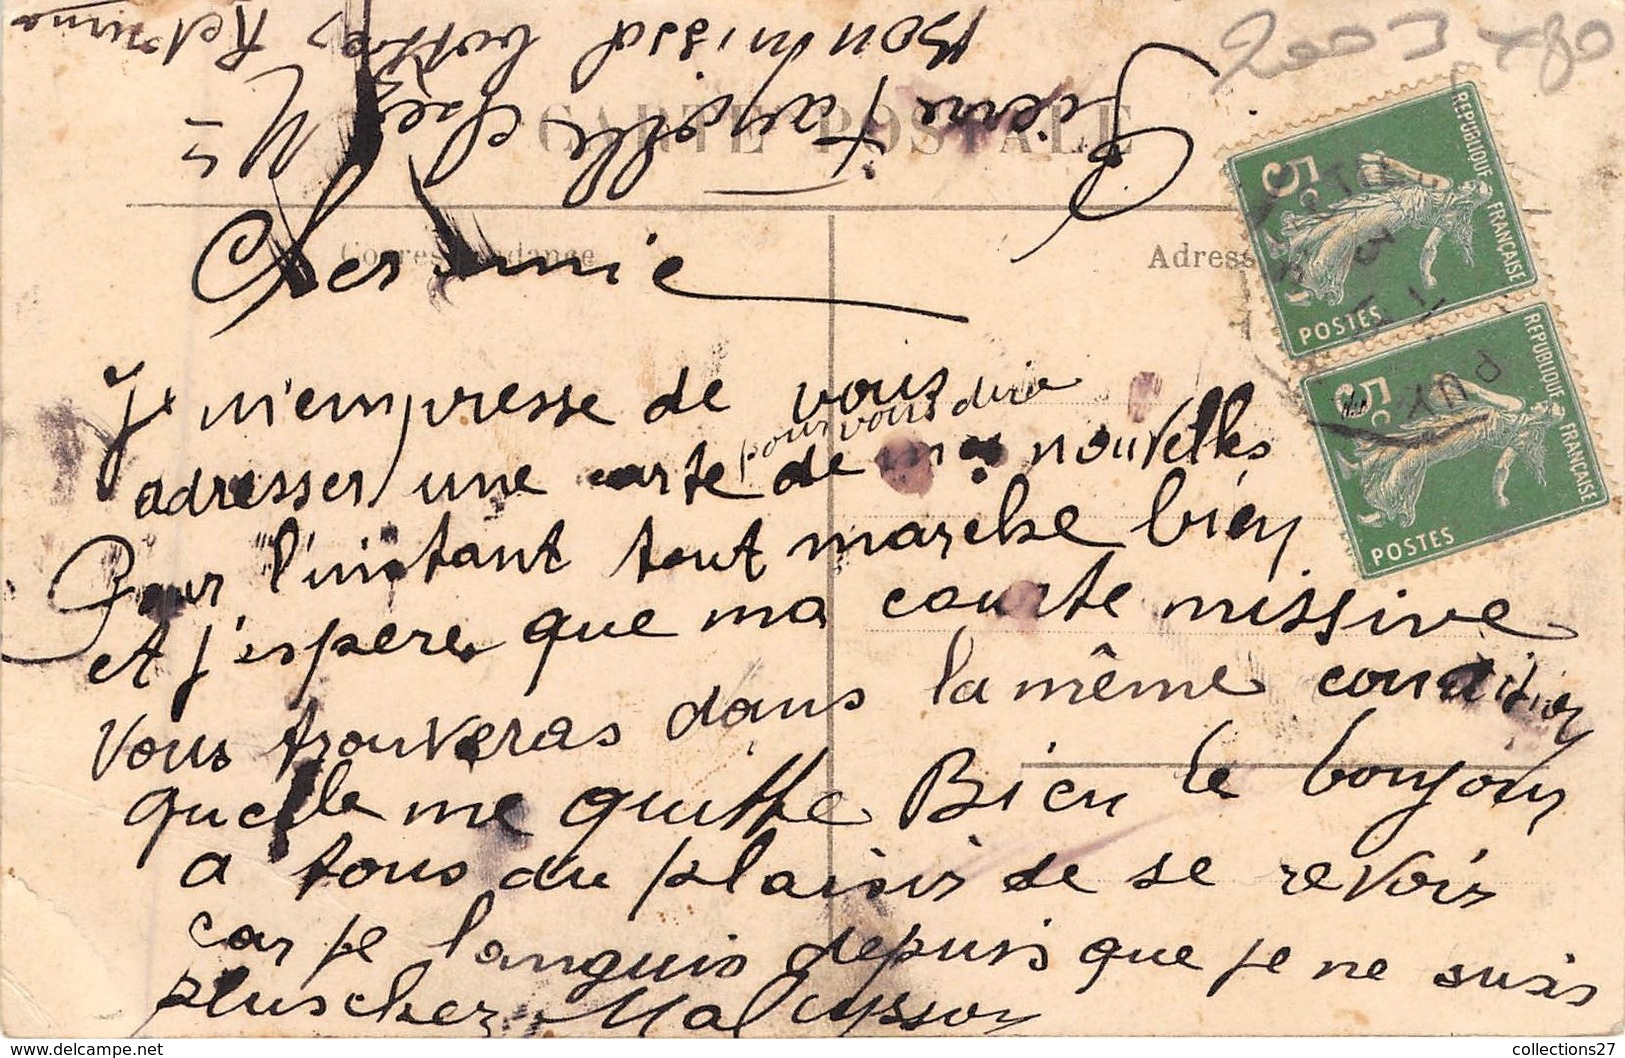 2003 x80
CARTE POSTALE
Pierre Fayolle chez M
Retourna
Correspondance
Adresse
REPUBLIQUE FRANÇAISE
5c
POSTES
REPUBLIQUE FRANÇAISE
5c
POSTES
PUY
Cher amie
Je m'empresse de vous
pour vous dire
adresser une carte de nouvelles
Pour l'instant tout marche bien
et j'espere que ma courte missive
vous trouveras dans la même condition
quelle me quitte Bien le bonjour
a tous au plaisir de se revoir
car je languis depuis que je ne suis
plus chez
collections27
www.delcampe.net